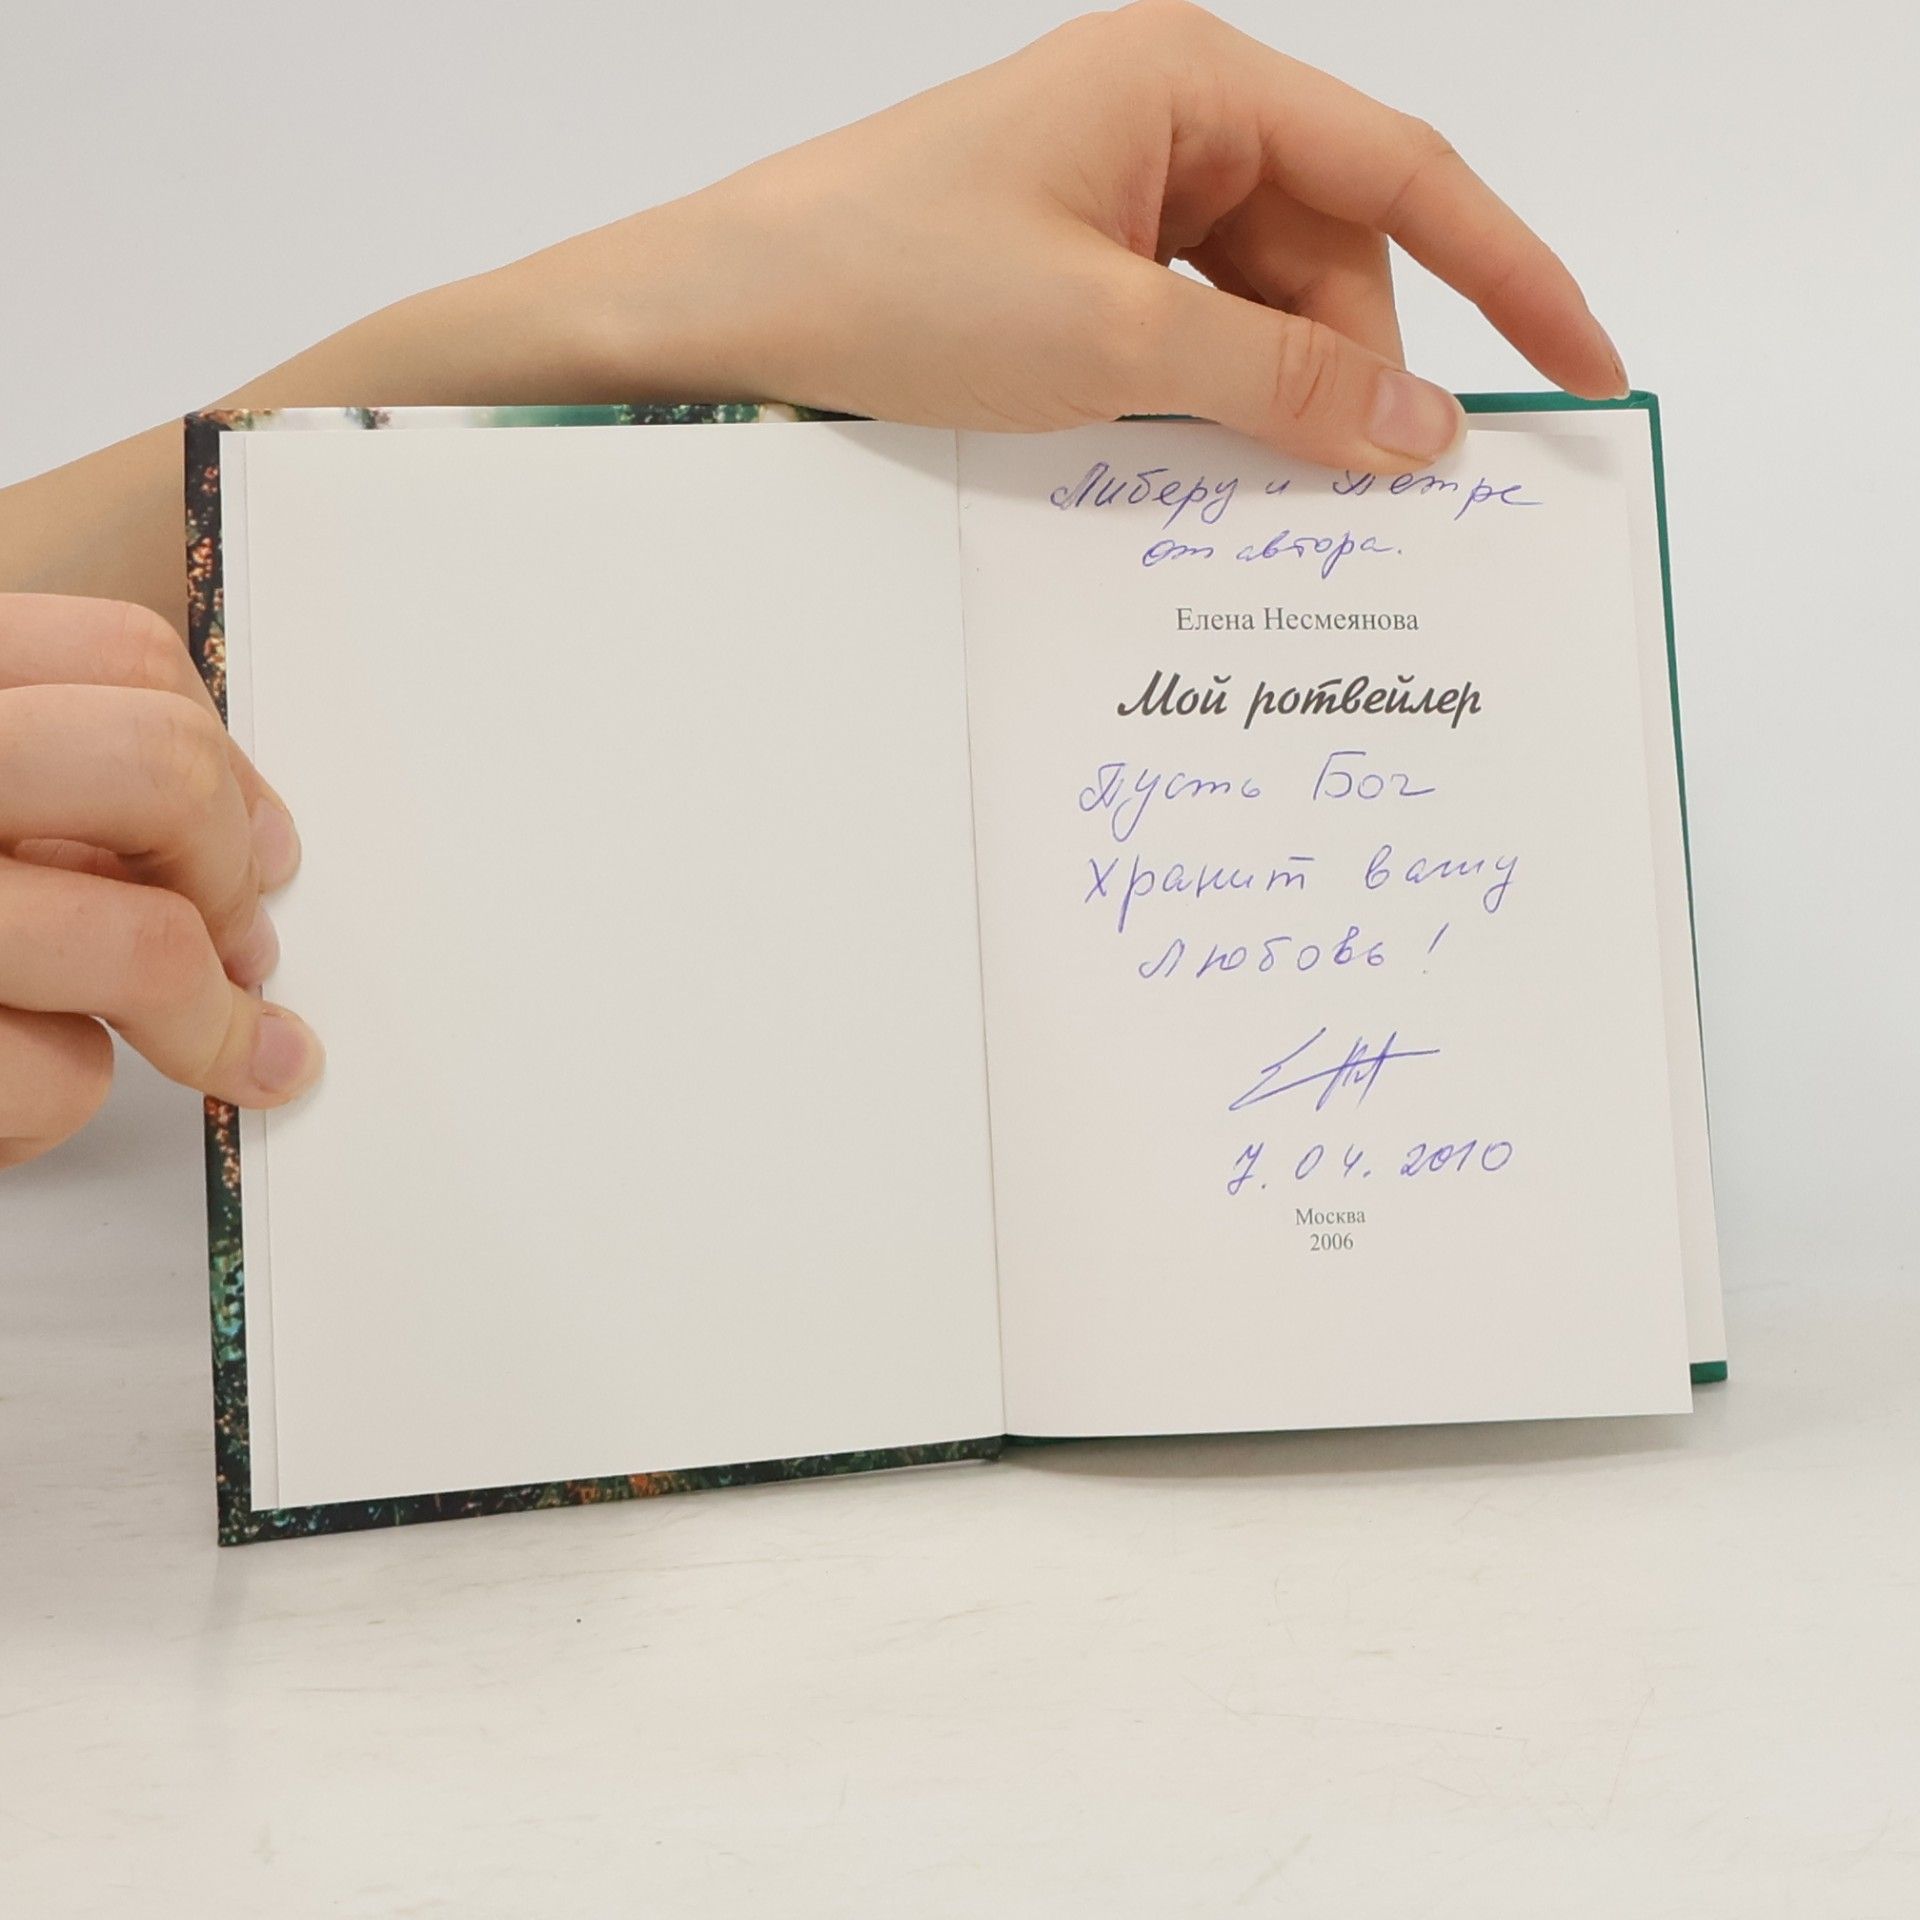 Либеру и Петре
от автора.
Елена Несмеянова
Мой ротвейлер
Пусть Бог
хранит вашу
любовь!
7.04.2010
Москва
2006